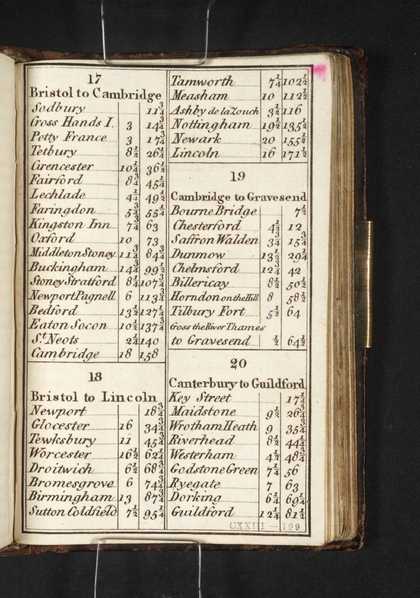 17
Bristol to Cambridge
Sodbury 11¾
Cross Hands I. 3 14¾
Petty France 3 17¾
Tetbury 8½ 26¼
Cirencester 10¼ 36½
Fairford 8¾ 45¼
Lechlade 4¼ 49½
Faringdon 5¾ 55¼
Kingston Inn 7¾ 63
Oxford 10 73
Middleton Stoney 11¾ 84¾
Buckingham 14¾ 99½
Stoney Stratford 8¼ 107¾
Newport Pagnell 6 113¾
Bedford 13½ 127¼
Eaton Socon 10½ 137¾
St. Neots 2¼ 140
Cambridge 18 158
18
Bristol to Lincoln
Newport 18¾
Glocester 16 34¾
Tewksbury 11 45¾
Worcester 16½ 62¼
Droitwich 6½ 68¾
Bromesgrove 6 74¾
Birmingham 13 87¾
Sutton Coldfield 7½ 95¼
Tamworth 7¼ 102½
Measham 10 112½
Ashby de la Zouch 3½ 116
Nottingham 19½ 135½
Newark 20 155½
Lincoln 16 171½
19
Cambridge to Gravesend
Bourne Bridge 7½
Chesterford 4½ 12
Saffron Walden 3¾ 15¾
Dunmow 13½ 29¼
Chelmsford 12¾ 42
Billericay 8½ 50½
Horndon on the Hill 8 58½
Tilbury Fort 5½ 64
Cross the River Thames
to Gravesend ½ 64½
20
Canterbury to Guildford
Key Street 17¼
Maidstone 9½ 26¾
Wrotham Heath 9 35¾
Riverhead 8½ 44¼
Westerham 4½ 48¾
Godstone Green 7¼ 56
Ryegate 7 63
Dorking 6¼ 69¼
Guildford 12¼ 81½
CXXIII—199